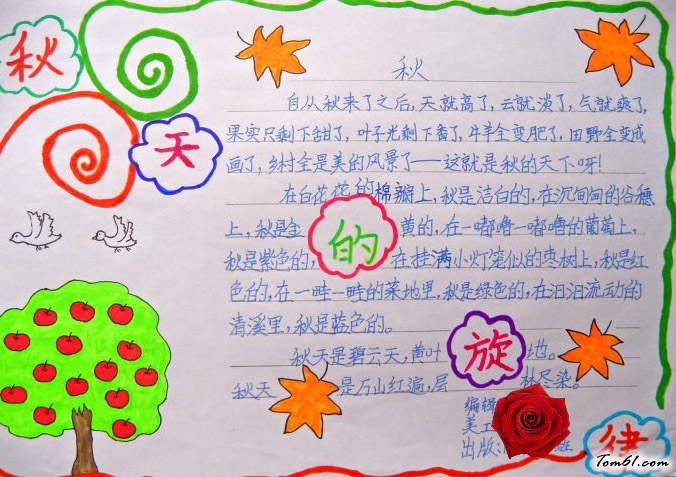 秋
天
的
旋
律
秋
自从秋来了之后,天就高了,云就淡了,气就爽了,
果实只剩下甜了,叶子光剩下香了,牛羊全变肥了,田野全变成
画了,乡村全是美的风景了——这就是秋的天下呀!
在白花花的棉瓣上,秋是洁白的,在沉甸甸的谷穗
上,秋是金 黄的,在一嘟噜一嘟噜的葡萄上,
秋是紫色的, 在挂满小灯笼似的枣树上,秋是红
色的,在一畦一畦的菜地里,秋是绿色的,在汩汩流动的
清溪里,秋是蓝色的。
秋天是碧云天,黄叶 地。
秋天 是万山红遍,层 林尽染。
编辑
美工
出版
Tom61.com